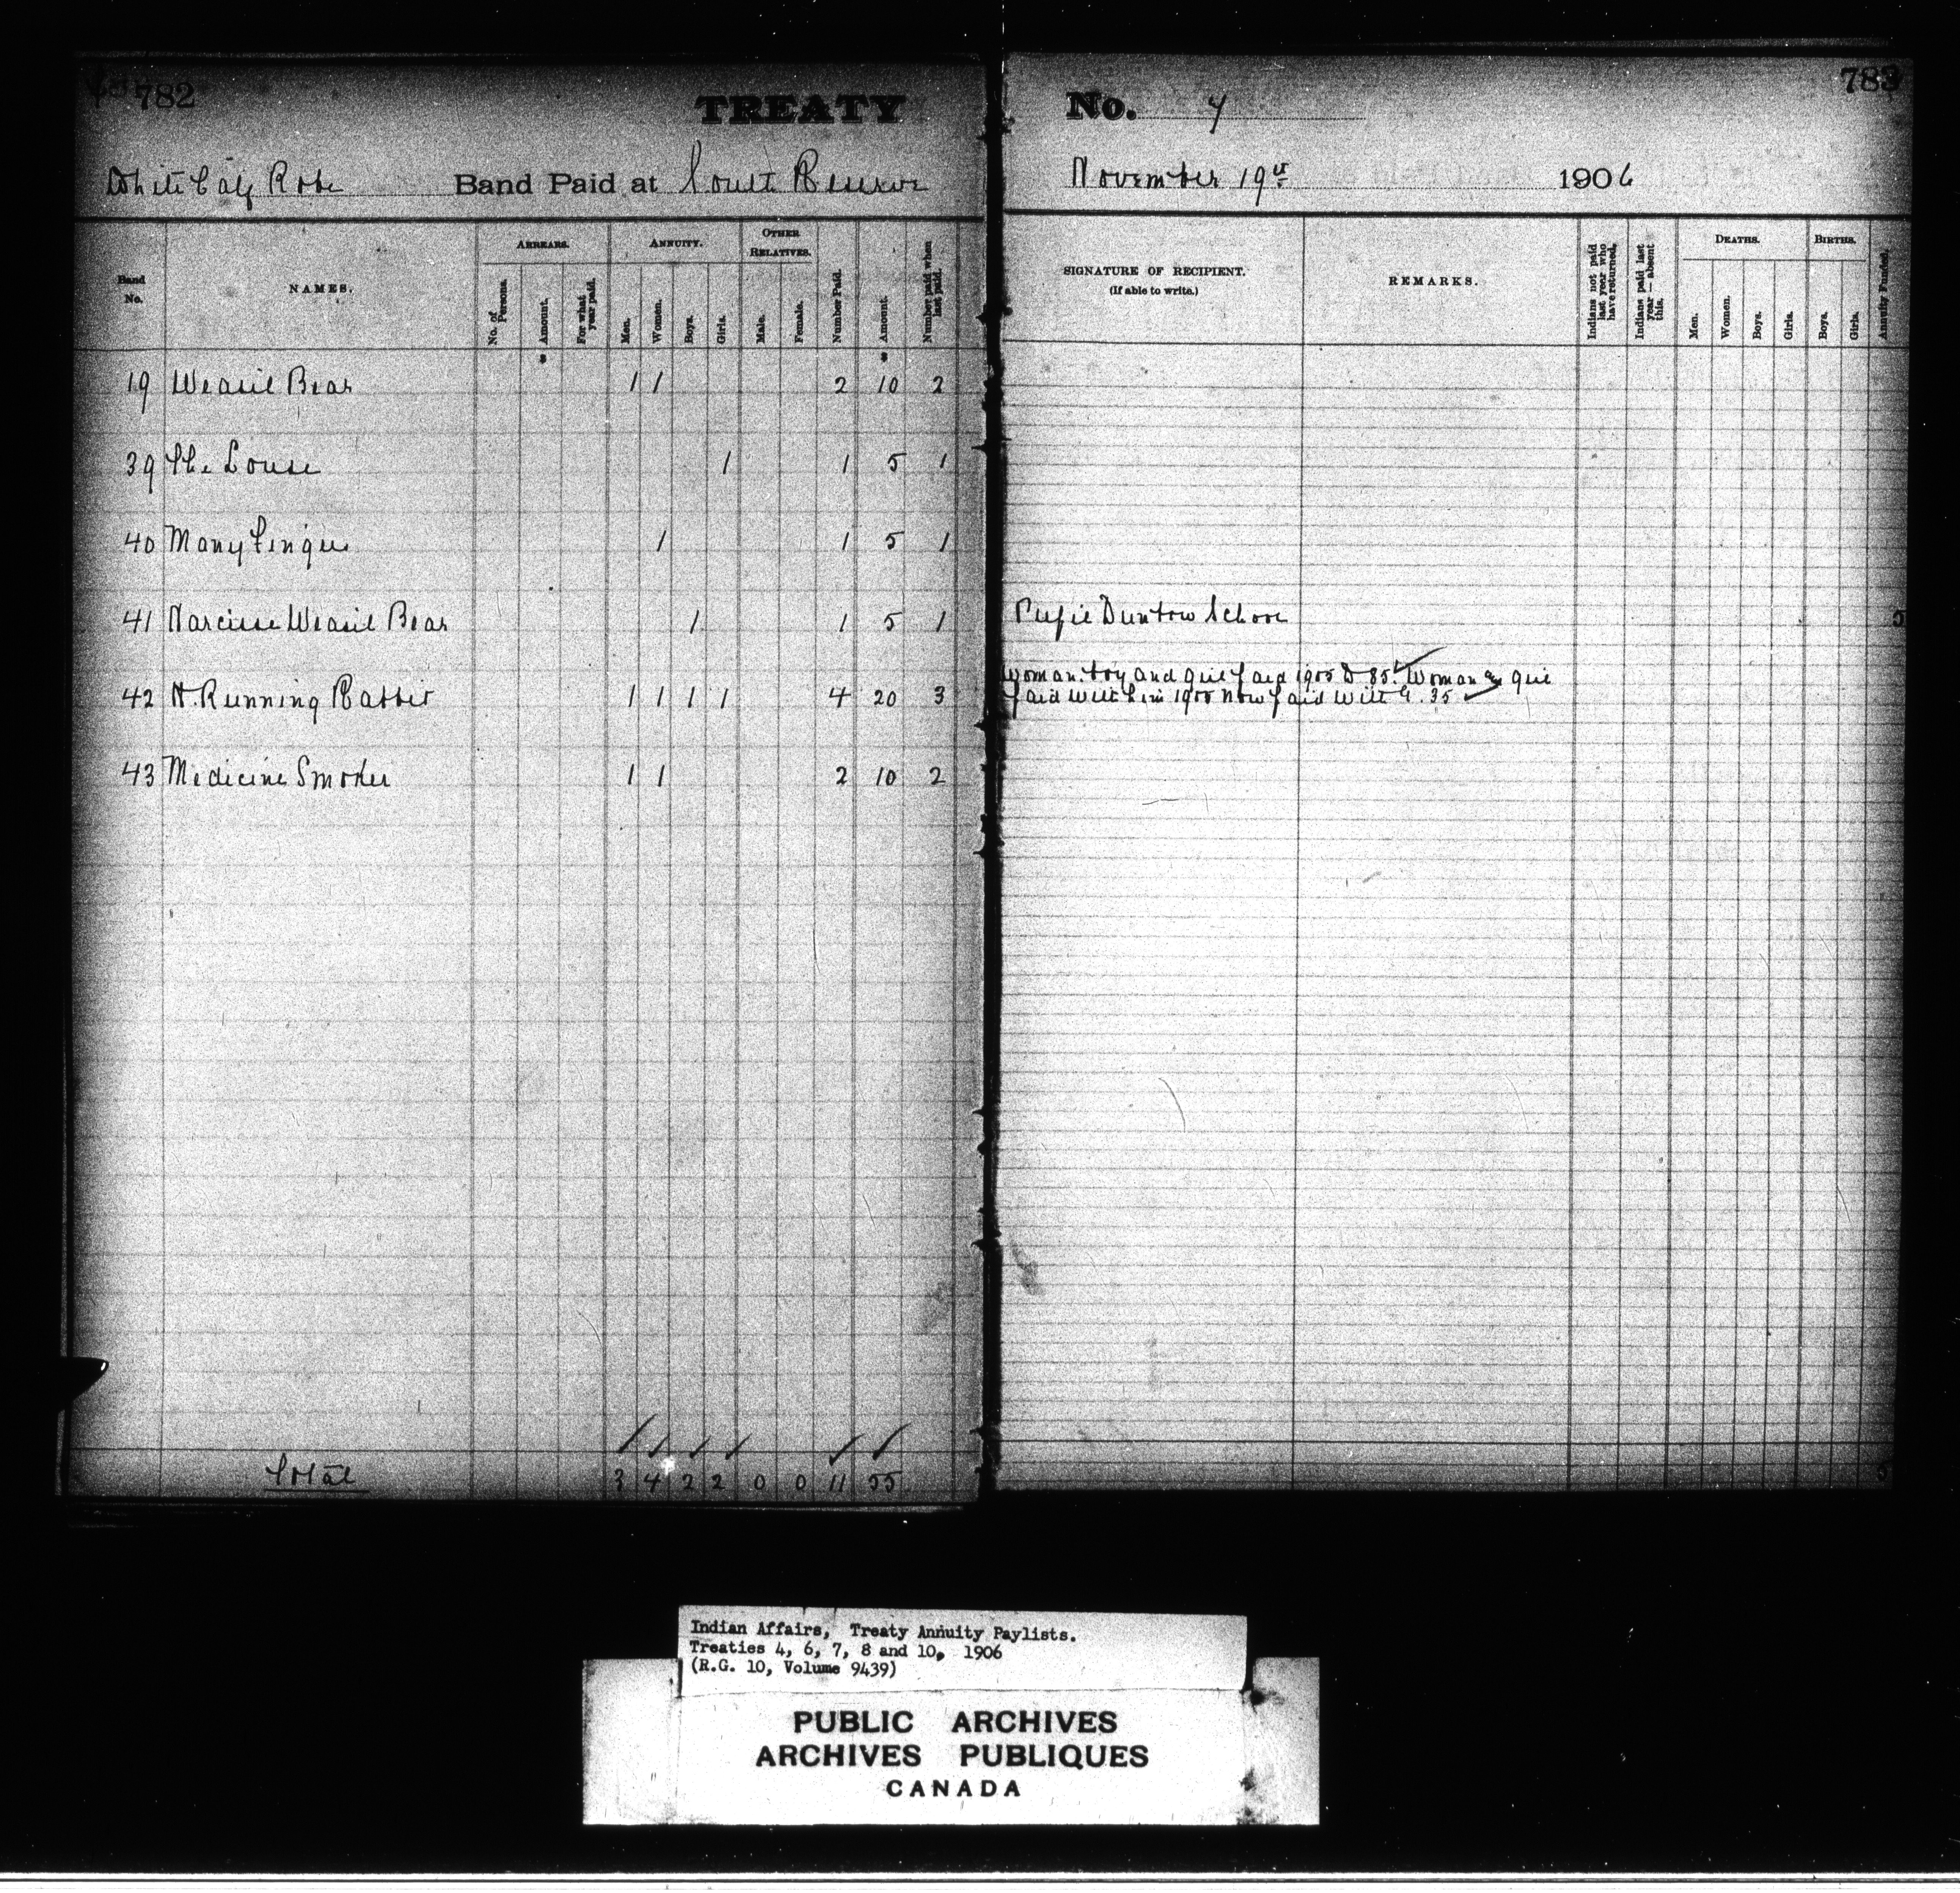 782
TREATY
No. 7
783
White Calf Robe Band Paid at South Reserve
November 19th 1906
Band No.
NAMES.
ARREARS.
No. of Persons.
Amount.
For what year paid.
ANNUITY.
Men.
Women.
Boys.
Girls.
OTHER RELATIVES.
Male.
Female.
Number Paid.
Amount.
Number paid when last paid.
SIGNATURE OF RECIPIENT.
(If able to write.)
REMARKS.
Indians not paid last year who have returned.
Indians paid last year—absent this.
DEATHS.
Men.
Women.
Boys.
Girls.
BIRTHS.
Boys.
Girls.
Annuity Funded.
19 Weasil Bear 1 1 2 10 2
39 The Louse 1 1 5 1
40 Many Fingers 1 1 5 1
41 Narcisse Weasil Bear 1 1 5 1 Pupil Dunbow School 5
Woman boy and girl paid 1905 D 85. Woman & girl
42 N. Running Rabbit 1 1 1 1 4 20 3 paid with him 1905 now paid with G. 35
43 Medicine Smoker 1 1 2 10 2
Total 3 4 2 2 0 0 11 55 5
Indian Affairs, Treaty Annuity Paylists.
Treaties 4, 6, 7, 8 and 10, 1906
(R.G. 10, Volume 9439)
PUBLIC ARCHIVES
ARCHIVES PUBLIQUES
CANADA